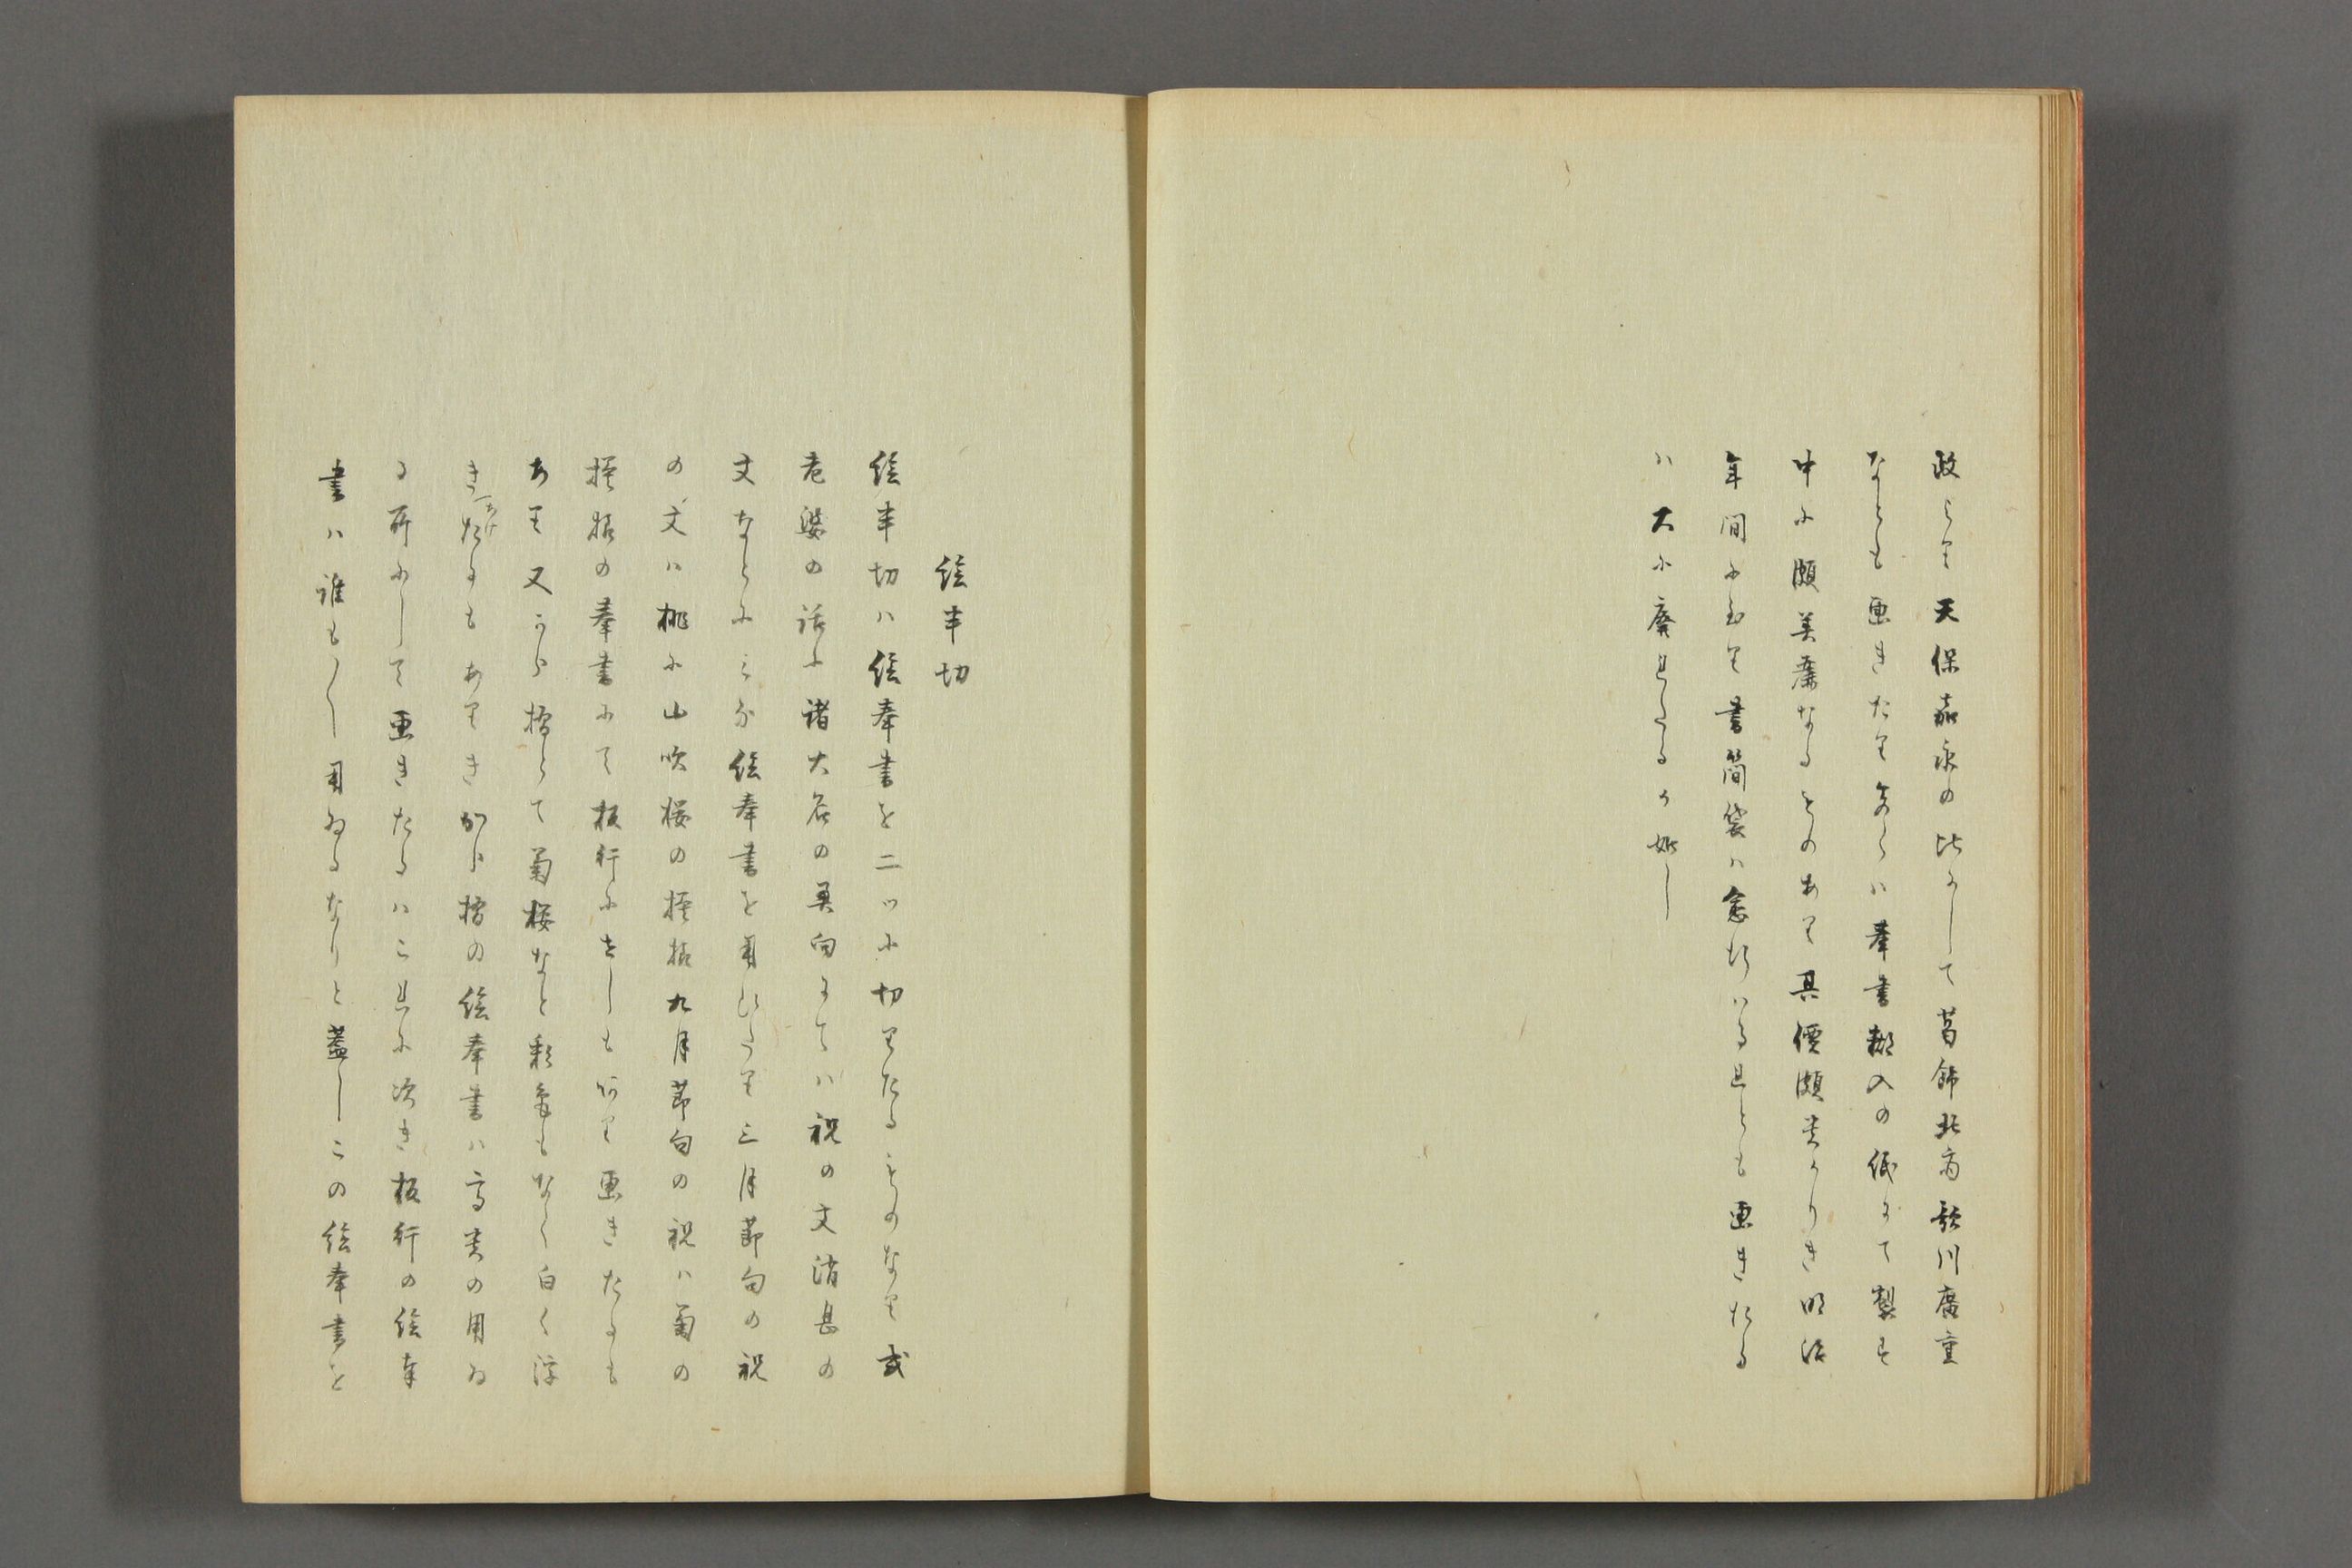 政より天保嘉永の比にして葛飾北斎歌川廣重
なとも画きたり多くハ奉書糊入の紙にて製す
中に頗美麗なるものありて其價頗貴かりき明治
年間に至り書簡袋ハ愈行ハるれとも画きたる
ハ大に廃れたるか如し
絵半切
絵半切ハ絵奉書を二ッに切りたるものなり或
老婆の話に諸大名の奥向にてハ祝の文消息の
文なとにハ絵奉書を用ひたり三月節句の祝
の文ハ桃に山吹桜の折枝九月節句の祝ハ菊の
折枝の奉書にて板行にせしも あり画きたるも
あり又から摺とて菊桜なと彩色もなく白く浮
きあけたるもありきから摺の絵奉書ハ高貴の用ゐ
る所にして画きたるハこれに次き板行の絵奉
書ハ誰も〱用ゐるなりと蓋しこの絵奉書を